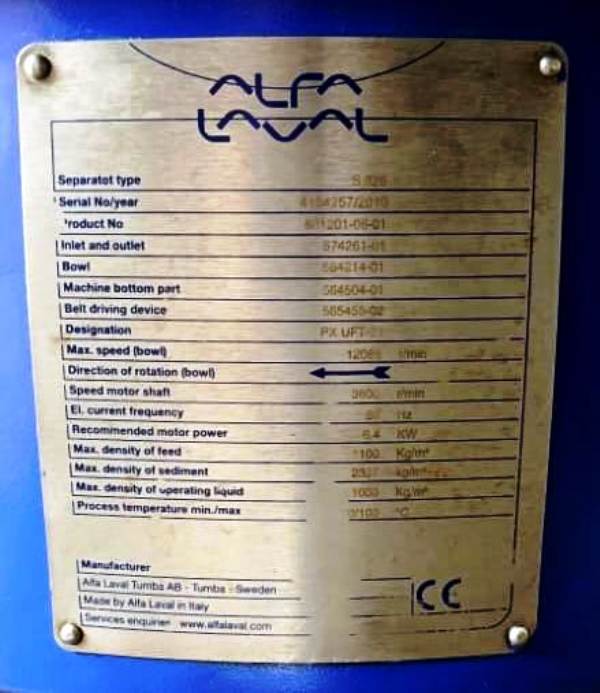 ALFA
LAVAL
Separatot type
Serial No/year
Product No 01201-06-01
Inlet and outlet 574261-01
Bowl 564214-01
Machine bottom part 564504-01
Belt driving device 565455-02
Designation PX UFT
Max. speed (bowl) r/min
Direction of rotation (bowl)
Speed motor shaft 3600 r/min
El. current frequency Hz
Recommended motor power KW
Max. density of feed 1100 Kg/m³
Max. density of sediment kg/m³
Max. density of operating liquid 1000 Kg/m³
Process temperature min./max 0/100 °C
Manufacturer
Alfa Laval Tumba AB - Tumba - Sweden
Made by Alfa Laval in Italy
Services enquiries www.alfalaval.com
CE